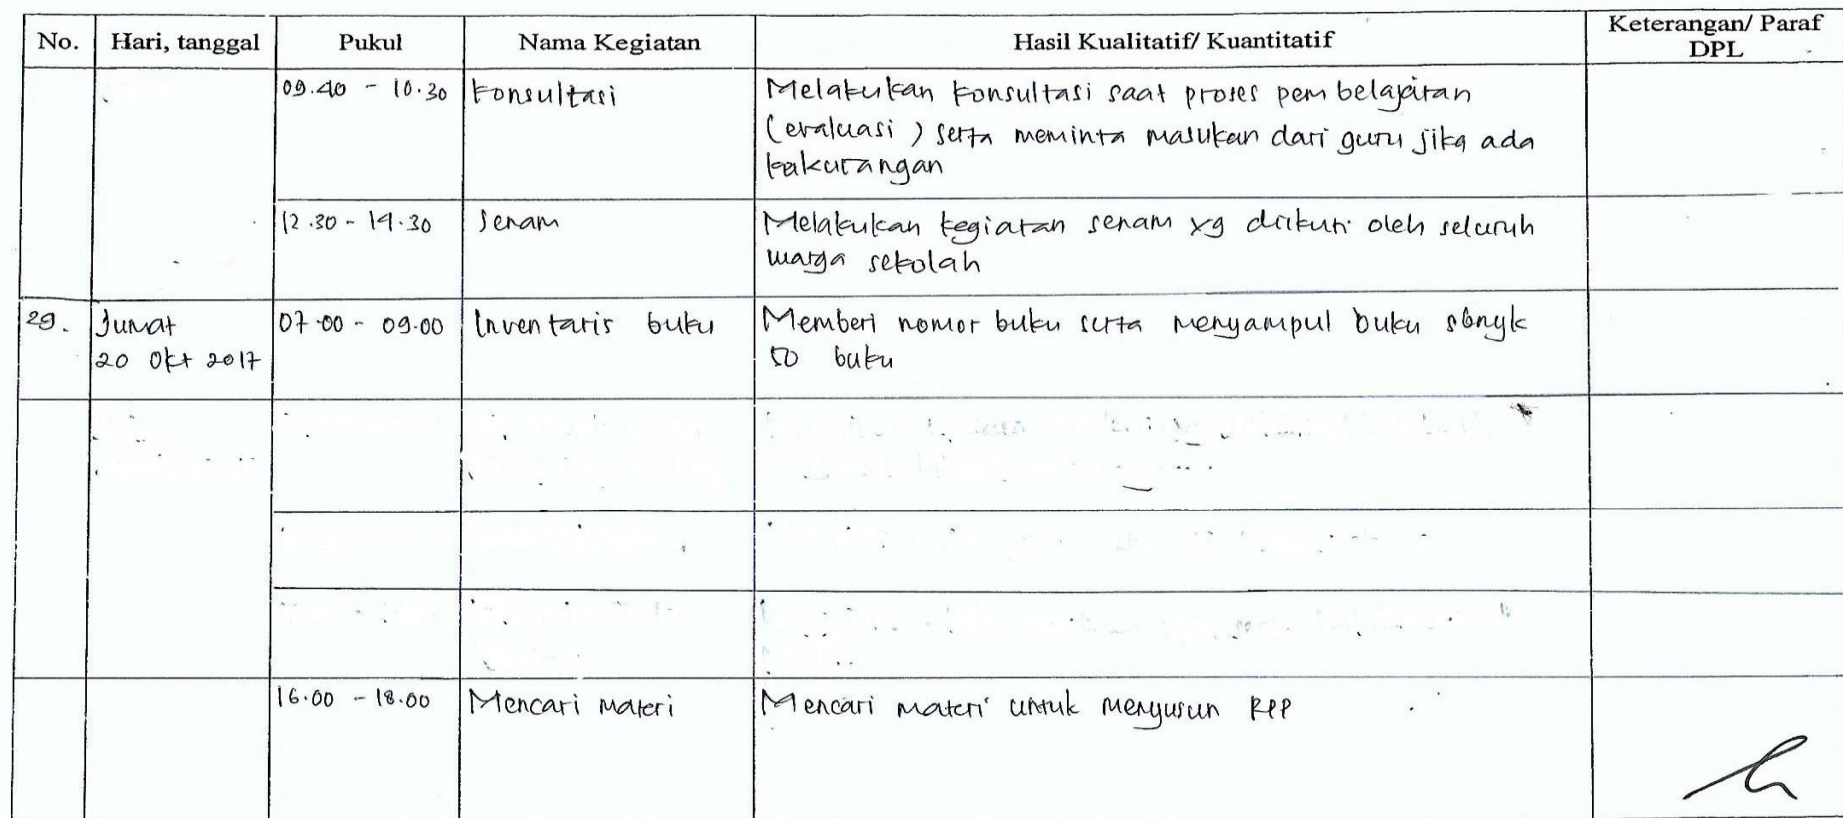 No. Hari, tanggal Pukul Nama Kegiatan Hasil Kualitatif/ Kuantitatif Keterangan/ Paraf DPL
09.40 - 10.30 Konsultasi Melakukan konsultasi saat proses pembelajaran
(evaluasi) serta meminta masukan dari guru jika ada
kakurangan
12.30 - 14.30 Senam Melakukan kegiatan senam yg diikuti oleh seluruh
warga sekolah
29. Jumat 07.00 - 09.00 Inventaris buku Memberi nomor buku serta menyampul buku sbnyk
20 Okt 2017 50 buku
16.00 - 18.00 Mencari materi Mencari materi untuk menyusun RPP